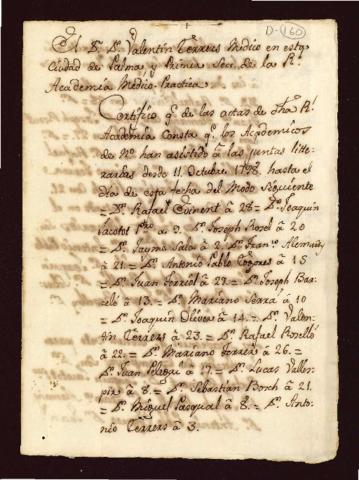 D-160
El Dr. Dn. Valentin Terrers Medico en esta
Ciudad de Palma, y Primer Secr. de la Rl.
Academia Medico-Practica
Certifico q.e de las actas de dha Rl.
Academia Consta q.e los Academicos
de No. han asistido â las juntas litte-
rarias desde 11 Octubre 1798 hasta el
dia de esta fecha del Modo Siguiente
= Dn. Rafael â 28 = Dn. Joaquin
â 9. Dn. Joseph Rosel â 20
= Dn. Jayme Sala â 2. Dn. Franco. Alemañy
â 21 = Dn. Antonio Pablo Togores â 15
= Dn. Juan â 27. = Dn. Joseph Bar-
celó â 13. = Dn. Mariano Serra â 10
= Dn. Joaquin Oliver â 14. = Dn. Valen-
tin Terrers â 23. = Dn. Rafael Roselló
â 22. = Dn. Mariano Torrers â 26. =
Dn. Juan Pelegri â 17. = Dn. Lucas Vallen-
pir â 8. = Dn. Sebastian Bosch â 21.
= Dn. Miguel Pasqual â 8. = Dn. Anto-
nio Terrers â 3.